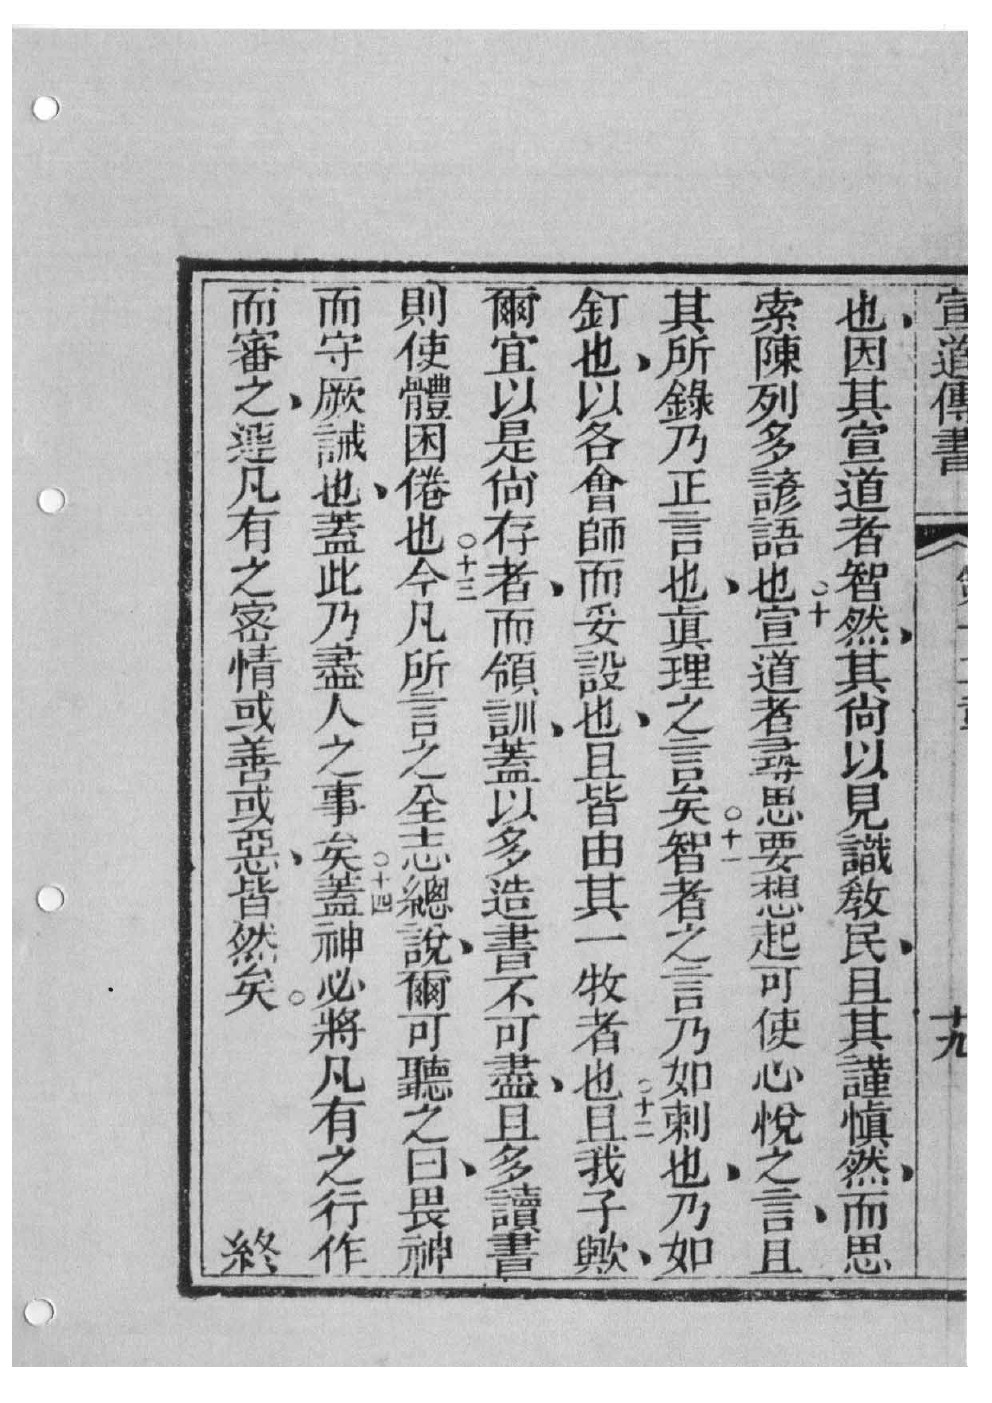 宣道傳書 第十二章 十九
也、因其宣道者智然、其尙以見識敎民、且其謹愼然、而思
索陳列多諺語也○十宣道者尋思要想起可使心悅之言、且
其所錄乃正言也、眞理之言矣○十一智者之言乃如刺也、乃如
釘也、以各會師而妥設也、且皆由其一牧者也○十二且我子歟、
爾宜以是尙存者、而領訓、蓋以多造書不可盡、且多讀書
則使體困倦也○十三今凡所言之全志總說、爾可聽之曰、畏神
而守厥誡也、蓋此乃盡人之事矣○十四蓋神必將凡有之行作
而審之、凡有之密情或善或惡、皆然矣。
終